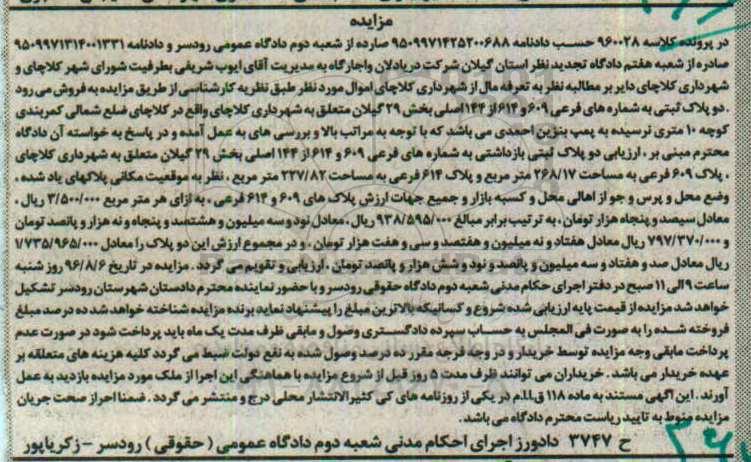 مزایده
در پرونده کلاسه ۹۶۰۰۲۸ حسب دادنامه ۹۵۰۹۹۷۱۴۲۵۲۰۰۶۸۸ صادره از شعبه دوم دادگاه عمومی رودسر و دادنامه ۹۵۰۹۹۷۱۳۱۴۰۰۱۳۳۱
صادره از شعبه هفتم دادگاه تجدید نظر استان گیلان شرکت دریادلان واجارگاه به مدیریت آقای ایوب شریفی بطرفیت شورای شهر کلاچای و
شهرداری کلاچای دایر بر مطالبه نظر به تعرفه مال از شهرداری کلاچای اموال مورد نظر طبق نظریه کارشناسی از طریق مزایده به فروش می رود
. دو پلاک ثبتی به شماره های فرعی ۶۰۹ و ۶۱۴ از ۱۴۴ اصلی بخش ۲۹ گیلان متعلق به شهرداری کلاچای واقع در کلاچای ضلع شمالی کمربندی
کوچه ۱۰ متری نرسیده به پمپ بنزین احمدی می باشد که با توجه به مراتب بالا و بررسی های به عمل آمده و در پاسخ به خواسته آن دادگاه
محترم مبنی بر ، ارزیابی دو پلاک ثبتی بازداشتی به شماره های فرعی ۶۰۹ و ۶۱۴ از ۱۴۴ اصلی بخش ۲۹ گیلان متعلق به شهرداری کلاچای
، پلاک ۶۰۹ فرعی به مساحت ۲۶۸/۱۷ متر مربع و پلاک ۶۱۴ فرعی به مساحت ۲۲۷/۸۲ متر مربع ، نظر به موقعیت مکانی پلاکهای یاد شده ،
وضع محل و پرس و جو از اهالی محل و کسبه بازار و جمیع جهات ارزش پلاک های ۶۰۹ و ۶۱۴ فرعی ، به ازای هر متر مربع ۳/۵۰۰/۰۰۰ ریال ،
معادل سیصد و پنجاه هزار تومان ، به ترتیب برابر مبالغ ۹۳۸/۵۹۵/۰۰۰ ریال ، معادل نود و سه میلیون و هشتصد و پنجاه و نه هزار و پانصد تومان
و ۷۹۷/۳۷۰/۰۰۰ ریال معادل هفتاد و نه میلیون و هفتصد و سی و هفت هزار تومان . و در مجموع ارزش این دو پلاک را معادل ۱/۷۳۵/۹۶۵/۰۰۰
ریال معادل صد و هفتاد و سه میلیون و پانصد و نود و شش هزار و پانصد تومان ، ارزیابی و تقویم می گردد . مزایده در تاریخ ۹۶/۸/۶ روز شنبه
ساعت ۹ الی ۱۱ صبح در دفتر اجرای حکام مدنی شعبه دوم دادگاه حقوقی رودسر و با حضور نماینده محترم دادستان شهرستان رودسر تشکیل
خواهد شد مزایده از قیمت پایه ارزیابی شده شروع و کسانیکه بالاترین مبلغ را پیشنهاد نماید برنده مزایده شناخته خواهد شد ده درصد مبلغ
فروخته شده را به صورت فی المجلس به حساب سپرده دادگستری وصول و مابقی ظرف مدت یک ماه باید پرداخت شود در صورت عدم
پرداخت مابقی وجه مزایده توسط خریدار و در وجه فرجه مقرر ده درصد وصول شده به نفع دولت ضبط می گردد کلیه هزینه های متعلقه بر
عهده خریدار می باشد . خریداران می توانند ظرف مدت ۵ روز قبل از شروع مزایده با هماهنگی این اجرا از ملک مورد مزایده بازدید به عمل
آورند . این آگهی مستند به ماده ۱۱۸ ق.ا.ا.م در یکی از روزنامه های کی کثیرالانتشار محلی درج و منتشر می گردد . ضمنا احراز صحت جریان
مزایده منوط به تایید ریاست محترم دادگاه می باشد .
ح ۳۷۴۷ دادورز اجرای احکام مدنی شعبه دوم دادگاه عمومی ( حقوقی ) رودسر – زکریاپور